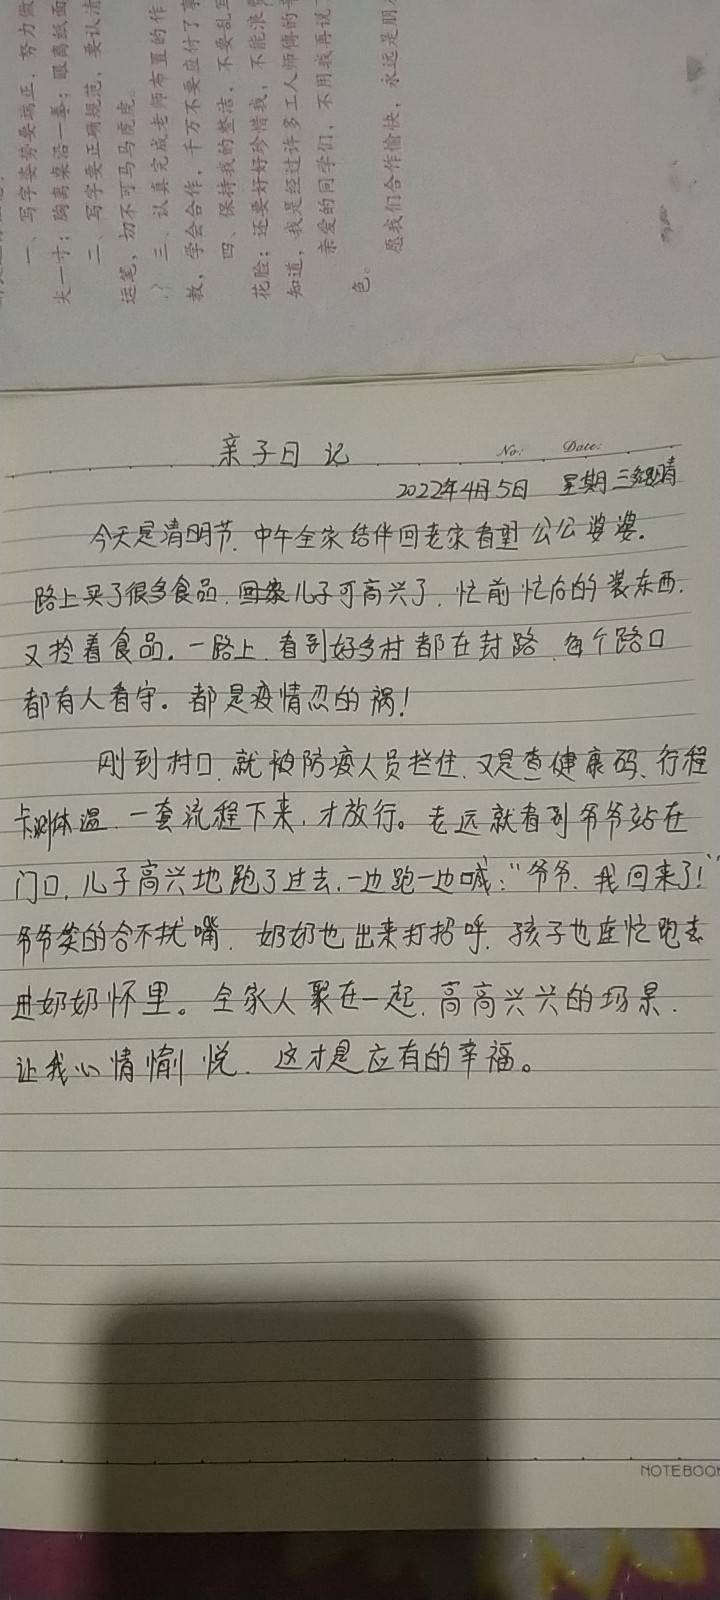 一、写字姿势要端正，努力做
尖一寸；胸离桌沿一拳；眼离纸面
二、写字要正确规范，要认清
运笔，切不可马马虎虎。
三、认真完成老师布置的作
教，学会合作，千万不要应付了事
四、保持我的整洁，不要乱写
花脸；还要好好珍惜我，不能浪费
知道，我是经过许多工人师傅的辛
亲爱的同学们，不用我再说了
色。
愿我们合作愉快，永远是朋
亲子日记
No: Date:
2022年4月5日 星期三 晴
今天是清明节.中午全家结伴回老家看望公公婆婆.
路上买了很多食品.儿子可高兴了.忙前忙后的装东西.
又拎着食品.一路上.看到好多村都在封路.每个路口
都有人看守。都是疫情忍的祸！
刚到村口.就被防疫人员拦住.又是查健康码、行程
卡测体温.一套流程下来.才放行。老远就看到爷爷站在
门口.儿子高兴地跑了过去.一边跑一边喊："爷爷.我回来了！"
爷爷笑的合不扰嘴.奶奶也出来打招呼.孩子也连忙跑去
进奶奶怀里。全家人聚在一起.高高兴兴的场景.
让我心情愉悦.这才是应有的幸福。
NOTEBOOK